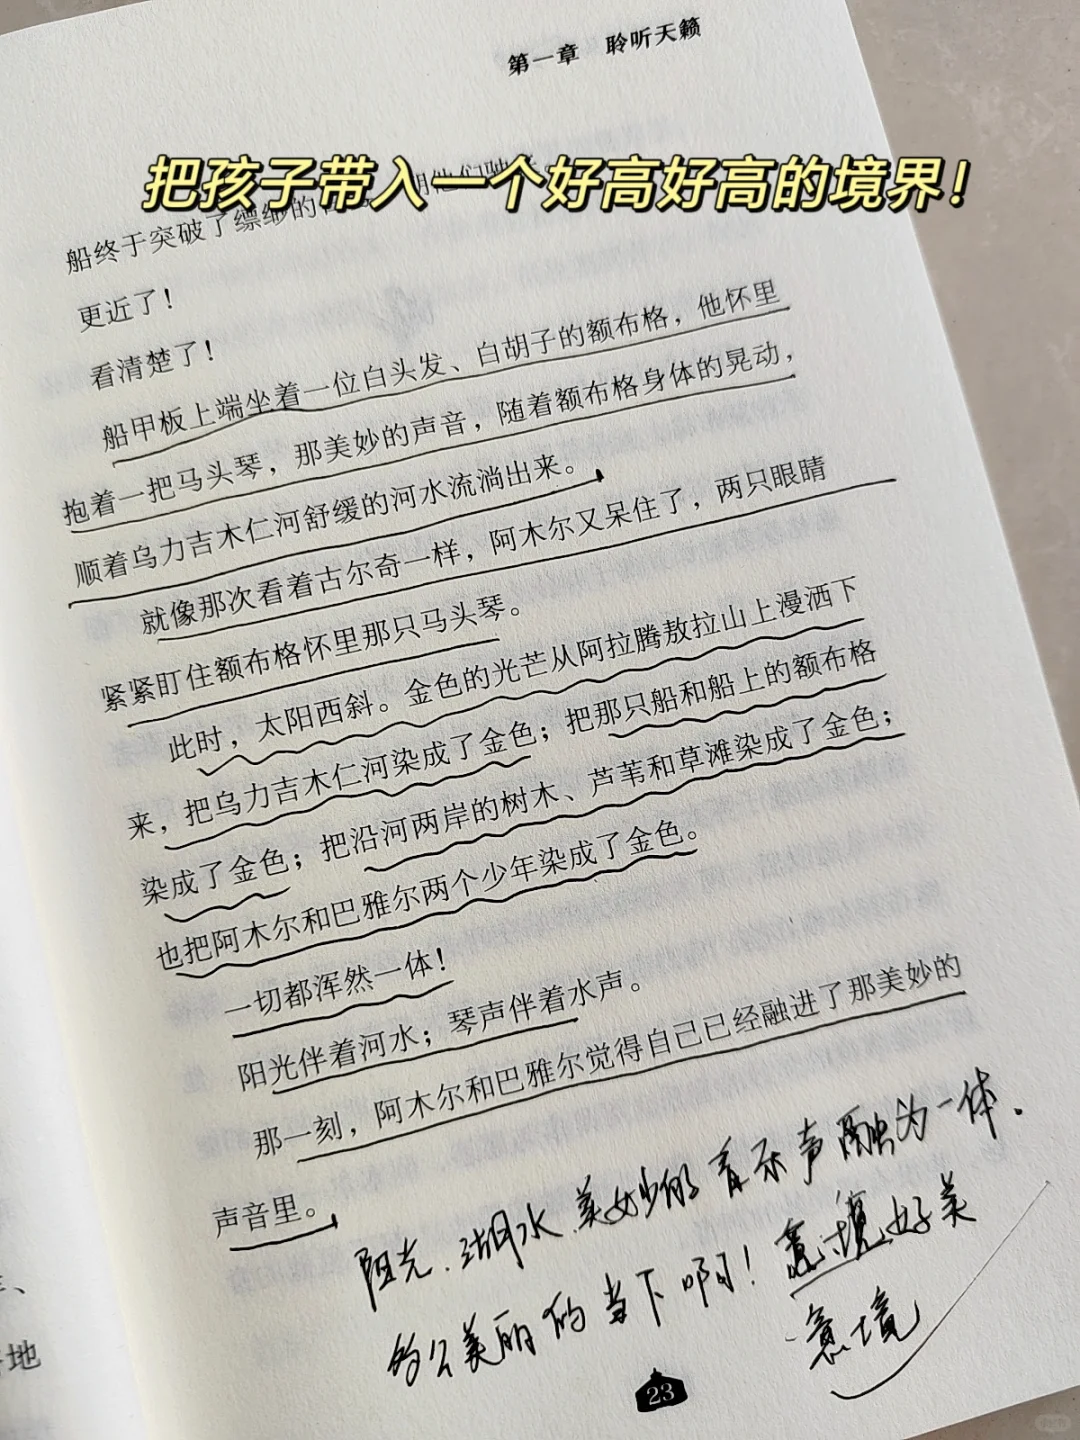 第一章 聆听天籁
把孩子带入一个好高好高的境界！
船终于突破了缥缈的
更近了！
看清楚了！
船甲板上端坐着一位白头发、白胡子的额布格，他怀里
抱着一把马头琴，那美妙的声音，随着额布格身体的晃动，
顺着乌力吉木仁河舒缓的河水流淌出来。
就像那次看着古尔奇一样，阿木尔又呆住了，两只眼睛
紧紧盯住额布格怀里那只马头琴。
此时，太阳西斜。金色的光芒从阿拉腾敖拉山上漫洒下
来，把乌力吉木仁河染成了金色；把那只船和船上的额布格
染成了金色；把沿河两岸的树木、芦苇和草滩染成了金色；
也把阿木尔和巴雅尔两个少年染成了金色。
一切都浑然一体！
阳光伴着河水；琴声伴着水声。
那一刻，阿木尔和巴雅尔觉得自己已经融进了那美妙的
声音里。
阳光、湖水、美妙的音乐声融为一体.
多么美丽的当下啊！意境好美
意境
23
地